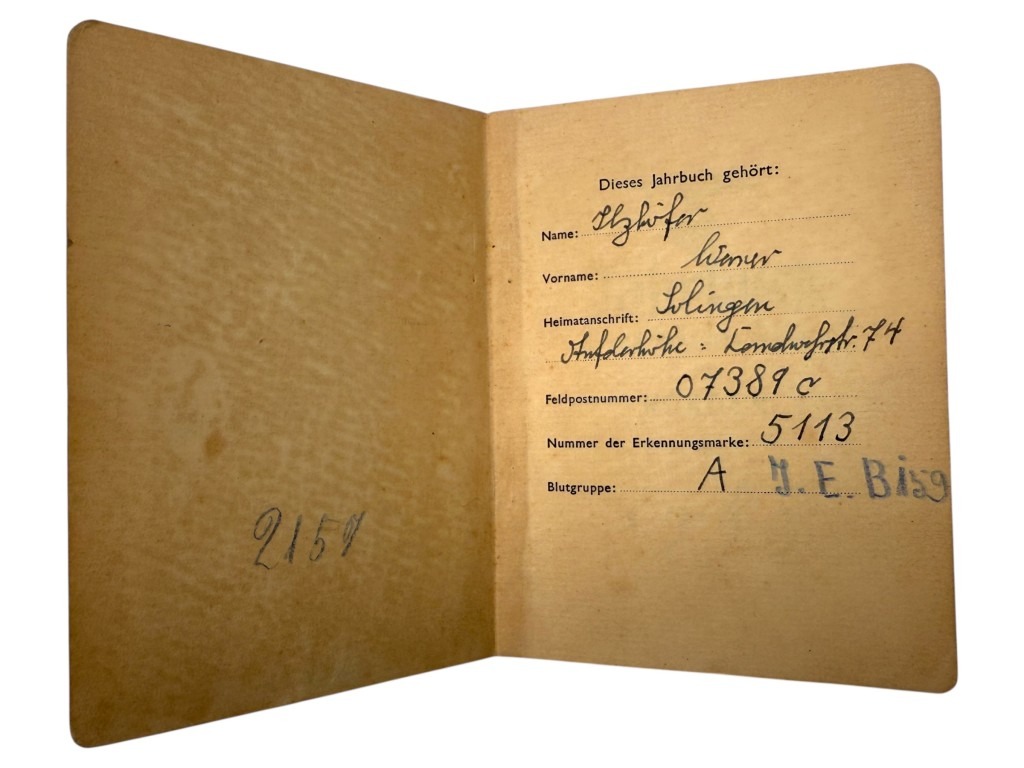 2159
Dieses Jahrbuch gehört:
Name: Ilzhöfer
Vorname: Werner
Heimatanschrift: Solingen
Aufderhöhe : Landwehrstr. 74
Feldpostnummer: 07389 c
Nummer der Erkennungsmarke: 5113
Blutgruppe: A J. E. B 159